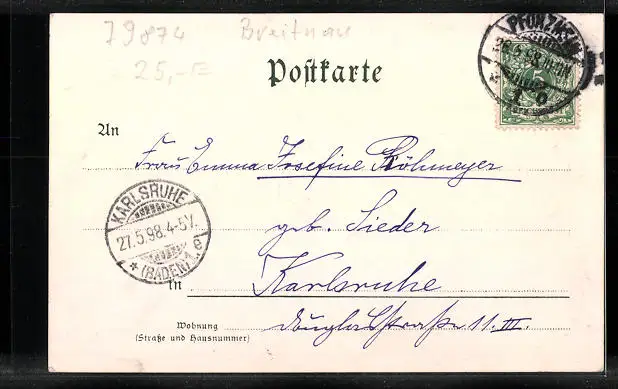 79874 Breitnau
25,-€
Postkarte
PFORZHEIM
5
An
Frau Emma Josefine Röhmeyer
KARLSRUHE
27.5.98.4-5V.
* (BADEN) 1 e
geb. Sieder
in Karlsruhe
Douglasstraße 11. III.
Wohnung
(Straße und Hausnummer)